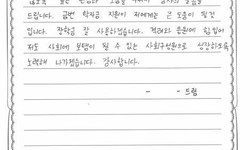 드립니다. 금번 학자금 지원이 저에게는 큰 도움이 될것
입니다. 장학금 잘 사용하겠습니다. 격려와 응원에 힘입어
저도 사회에 보탬이 될 수 있는 사회구성원으로 성장하도록
노력해 나가겠습니다. 감사합니다.
- - 드림